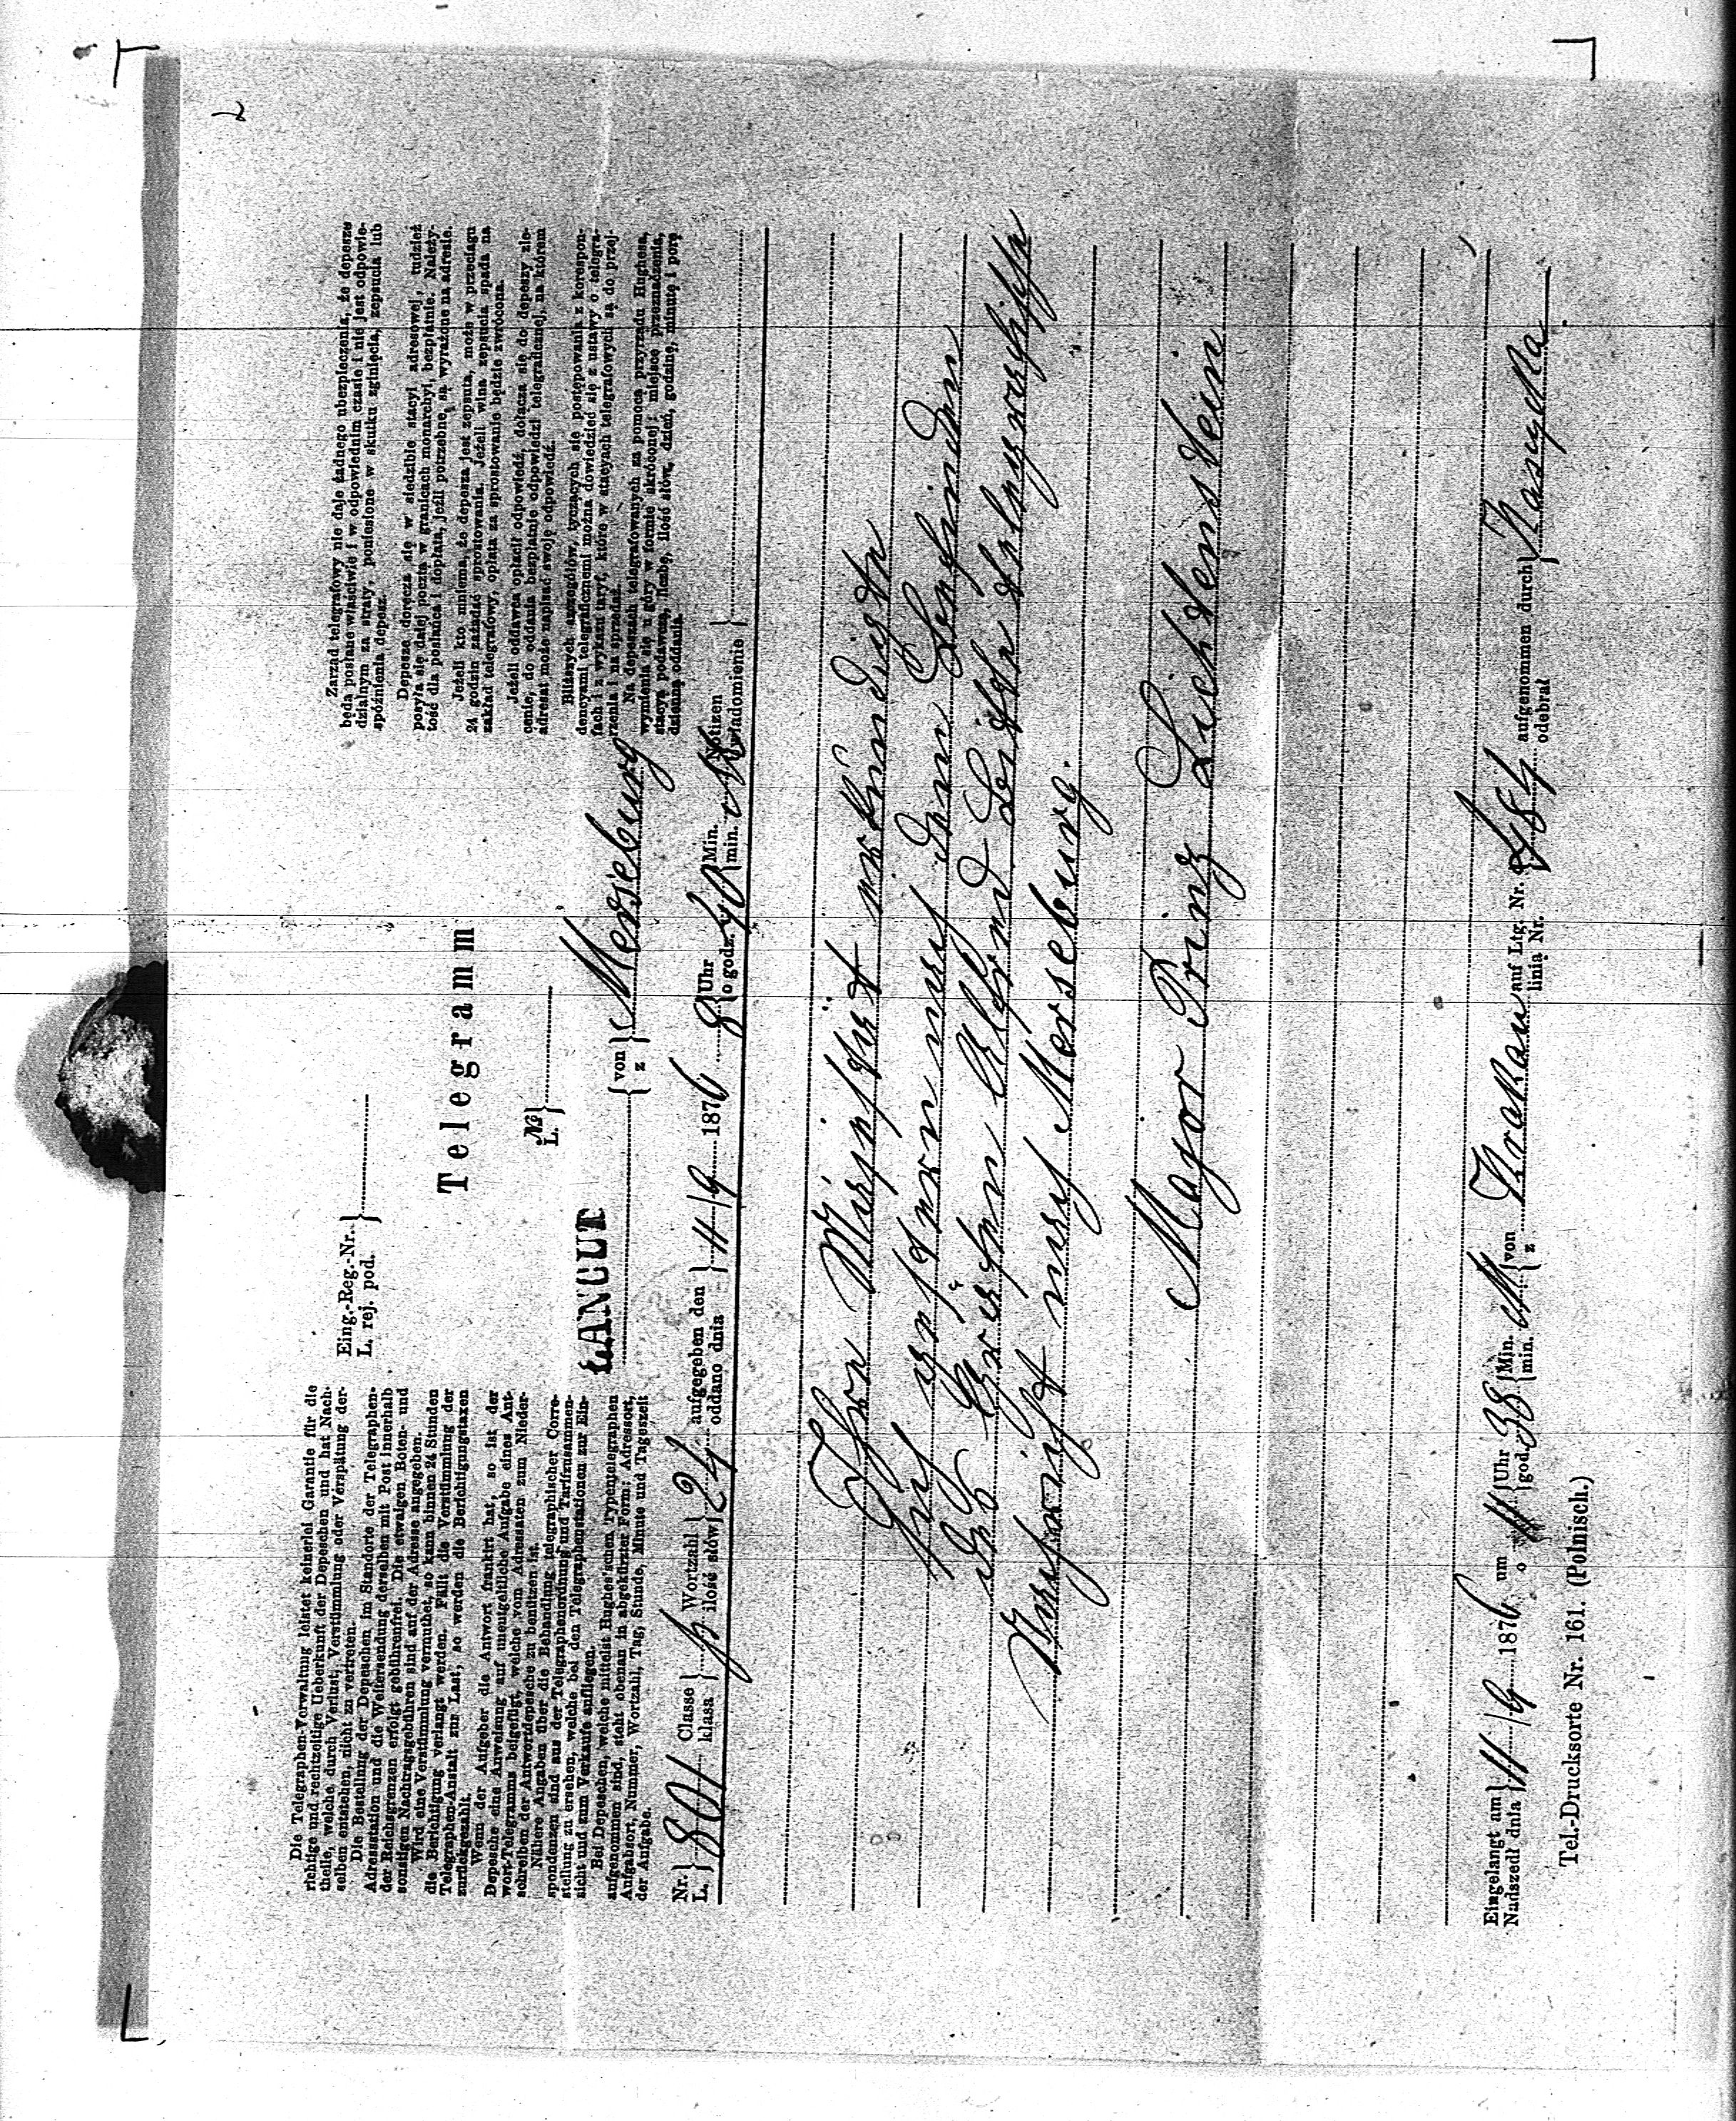 2
Die Telegraphen-Verwaltung leistet keinerlei Garantie für die
richtige und rechtzeitige Ueberkunft der Depeschen und hat Nach-
theile, welche durch Verlust, Verstümmlung oder Verspätung der-
selben entstehen, nicht zu vertreten.
Die Bestellung der Depeschen im Standorte der Telegraphen-
Adressstation und die Weitersendung derselben mit Post innerhalb
der Reichsgrenzen erfolgt gebührenfrei. Die etwaigen Boten- und
sonstigen Nachtragsgebühren sind auf der Adresse angegeben.
Wird eine Verstümmlung vermuthet, so kann binnen 24 Stunden
die Berichtigung verlangt werden. Fällt die Verstümmlung der
Telegraphen-Anstalt zur Last, so werden die Berichtigungstaxen
zurückgezahlt.
Wenn der Aufgeber die Antwort frankirt hat, so ist der
Depesche eine Anweisung auf unentgeltliche Aufgabe eines Ant-
wort-Telegramms beigefügt, welche vom Adressaten zum Nieder-
schreiben der Antwortdepesche zu benützen ist.
Nähere Angaben über die Behandlung telegraphischer Corre-
spondenzen sind aus der Telegraphenordnung und Tarifzusammen-
stellung zu ersehen, welche bei den Telegraphenstationen zur Ein-
sicht und zum Verkaufe aufliegen.
Bei Depeschen, welche mittelst Hughes'schen Typentelegraphen
aufgenommen sind, steht obenan in abgekürzter Form: Adressort,
Aufgabsort, Nummer, Wortzahl, Tag, Stunde, Minute und Tageszeit
der Aufgabe.
Eing.-Reg.-Nr.
L. rej. pod.
Telegramm
Nr.
L.
ŁANCUT von Merseburg
z
Zarząd telegrafowy nie daje żadnego ubezpieczenia, że depesze
będą posłane właściwie i w odpowiednim czasie i nie jest odpowie-
dzialnym za straty, poniesione w skutku zginięcia, zepsucia lub
spóźnienia depesz.
Depesze doręcza się w siedzibie stacyi adresowej, tudzież
posyła się dalej pocztą w granicach monarchyi, bezpłatnie. Należy-
tość dla posłańca i dopłata, jeźli potrzebne, są wyraźne na adresie.
Jeżeli kto mniema, że depesza jest zepsuta, może w przeciągu
24 godzin zażądać sprostowania. Jeżeli wina zepsucia spada na
zakład telegrafowy, opłata za sprostowanie będzie zwrócona.
Jeżeli oddawca opłacił odpowiedź, dołącza się do depeszy zle-
cenie, do oddania bezpłatnie odpowiedzi telegraficznej, na którem
adresat może napisać swoję odpowiedź.
Bliższych szczegółów, tyczących się postępowania z korespon-
dencyami telegraficznemi można dowiedzieć się z ustawy o telegra-
fach i z wykazu taryf, które w stacyach telegrafowych są do przej-
rzenia i na sprzedaż.
Na depeszach telegrafowanych za pomocą przyrządu Hughesa,
wymienia się u góry w formie skróconej: miejsce przeznaczenia,
stacyą podawczą, liczbę, ilość słów, dzień, godzinę, minutę i porę
dzienną oddania.
Nr. 801 Classe p Wortzahl 24 aufgegeben den 11/9 1876 8 Uhr 40 Min. Notizen
L. klasa ilość słów oddano dnia o godz. min. uwiadomienie
Ihre Majestät verkündete
sich gestern nach dem Befinden
des Grafen Alfred bitte telegraphische
Nachricht nach Merseburg.
Major Prinz Lichtenstein
Eingelangt am 11/9 1876 um 11 Uhr 38 Min. von Krakau auf Ltg. Nr. aufgenommen durch
Nadszedł dnia o godz. min. z linia Nr. odebrał
Tel.-Drucksorte Nr. 161. (Polnisch.)